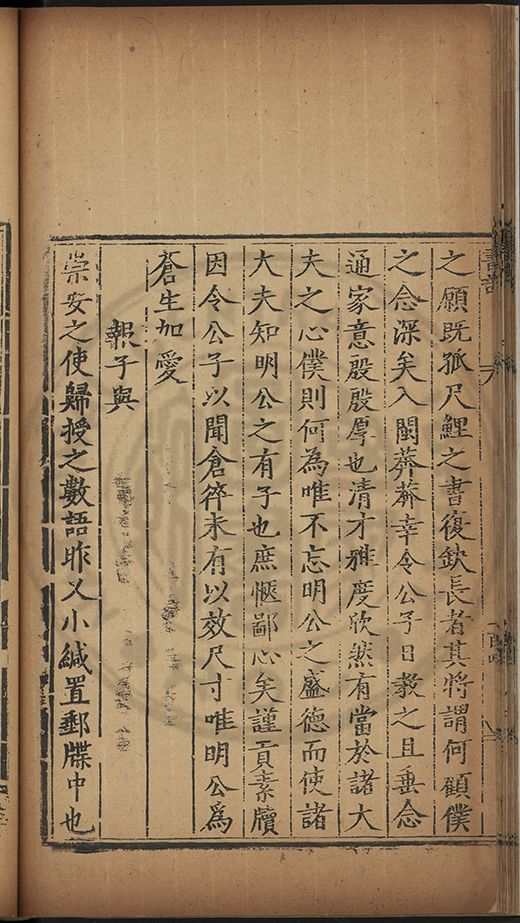 之願既孤尺鯉之書復缺長者其將謂何顧僕
之念深矣入閩莽莽幸令公子日教之且垂念
通家意殷殷厚也清才雅度欣然有當於諸大
夫之心僕則何為唯不忘明公之盛德而使諸
大夫知明公之有子也庶愜鄙心矣謹貢素牘
因令公子以聞倉猝未有以效尺寸唯明公爲
蒼生加愛
報子與
崇安之使歸授之數語昨又小緘置郵牒中也